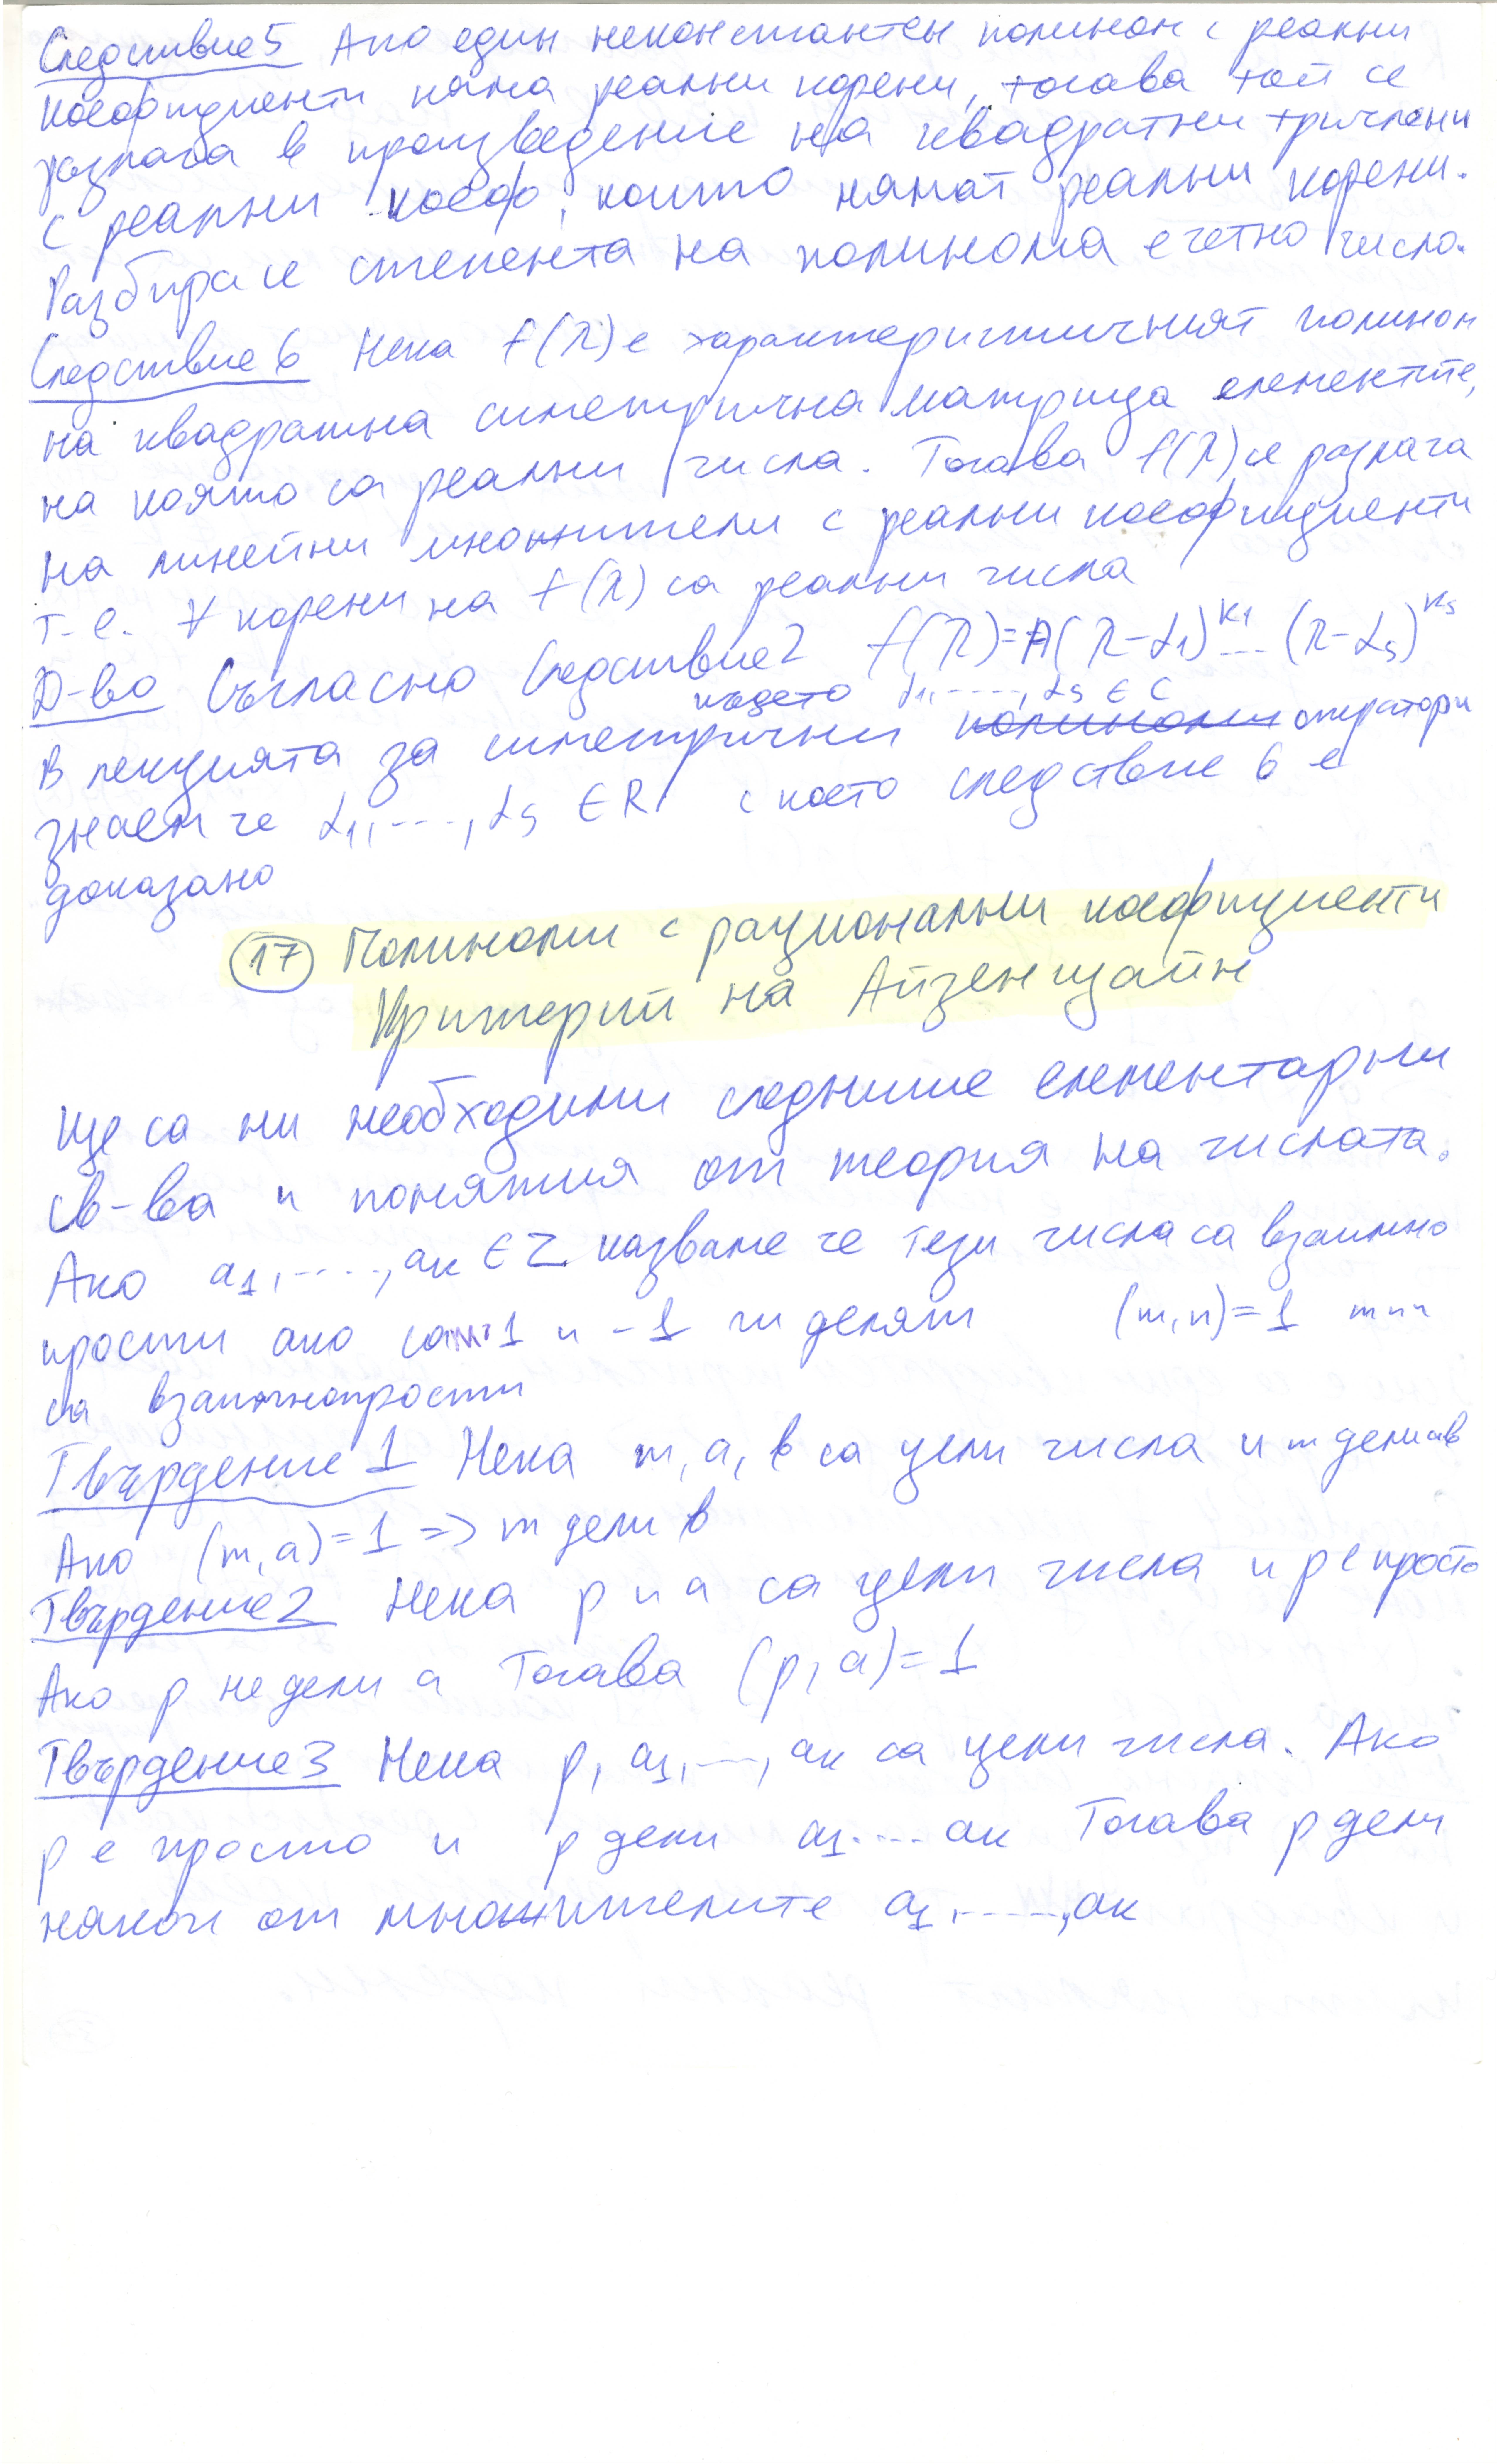 Следствие 5 Ако един неконстантен полином с реални
коефициенти няма реални корени, тогава той се
разлага в произведение на квадратни тричлени
с реални коеф, които нямат реални корени.
Разбира се степента на полинома е четно число.
Следствие 6 Нека f(λ) е характеристичният полином
на квадратна симетрична матрица елементите,
на която са реални числа. Тогава f(λ) се разлага
на линейни множители с реални коефициенти
т.е. ∀ корени на f(λ) са реални числа
Д-во Съгласно Следствие 2 f(λ)=A(λ-α₁)^k₁ ... (λ-αₛ)^kₛ
където α₁,....,αₛ ∈ C
В лекцията за симетрични полиноми оператори
знаем че α₁,...,αₛ ∈ R с което следствие 6 е
доказано
(17) Полиноми с рационални коефициенти
Критерий на Айзенщайн
Ще са ни необходими следните елементарни
св-ва и понятия от теория на числата.
Ако a₁,....,aₖ ∈ Z казваме че тези числа са взаимно
прости ако само 1 и -1 ги делят (m,n)=1 m и n
са взаимнопрости
Твърдение 1 Нека m, a, b са цели числа и m дели ab
Ако (m,a)=1 => m дели b
Твърдение 2 Нека p и a са цели числа и p е просто
Ако p не дели a Тогава (p,a)=1
Твърдение 3 Нека p, a₁,...,aₖ са цели числа. Ако
p е просто и p дели a₁....aₖ Тогава p дели
някой от множителите a₁,.....,aₖ